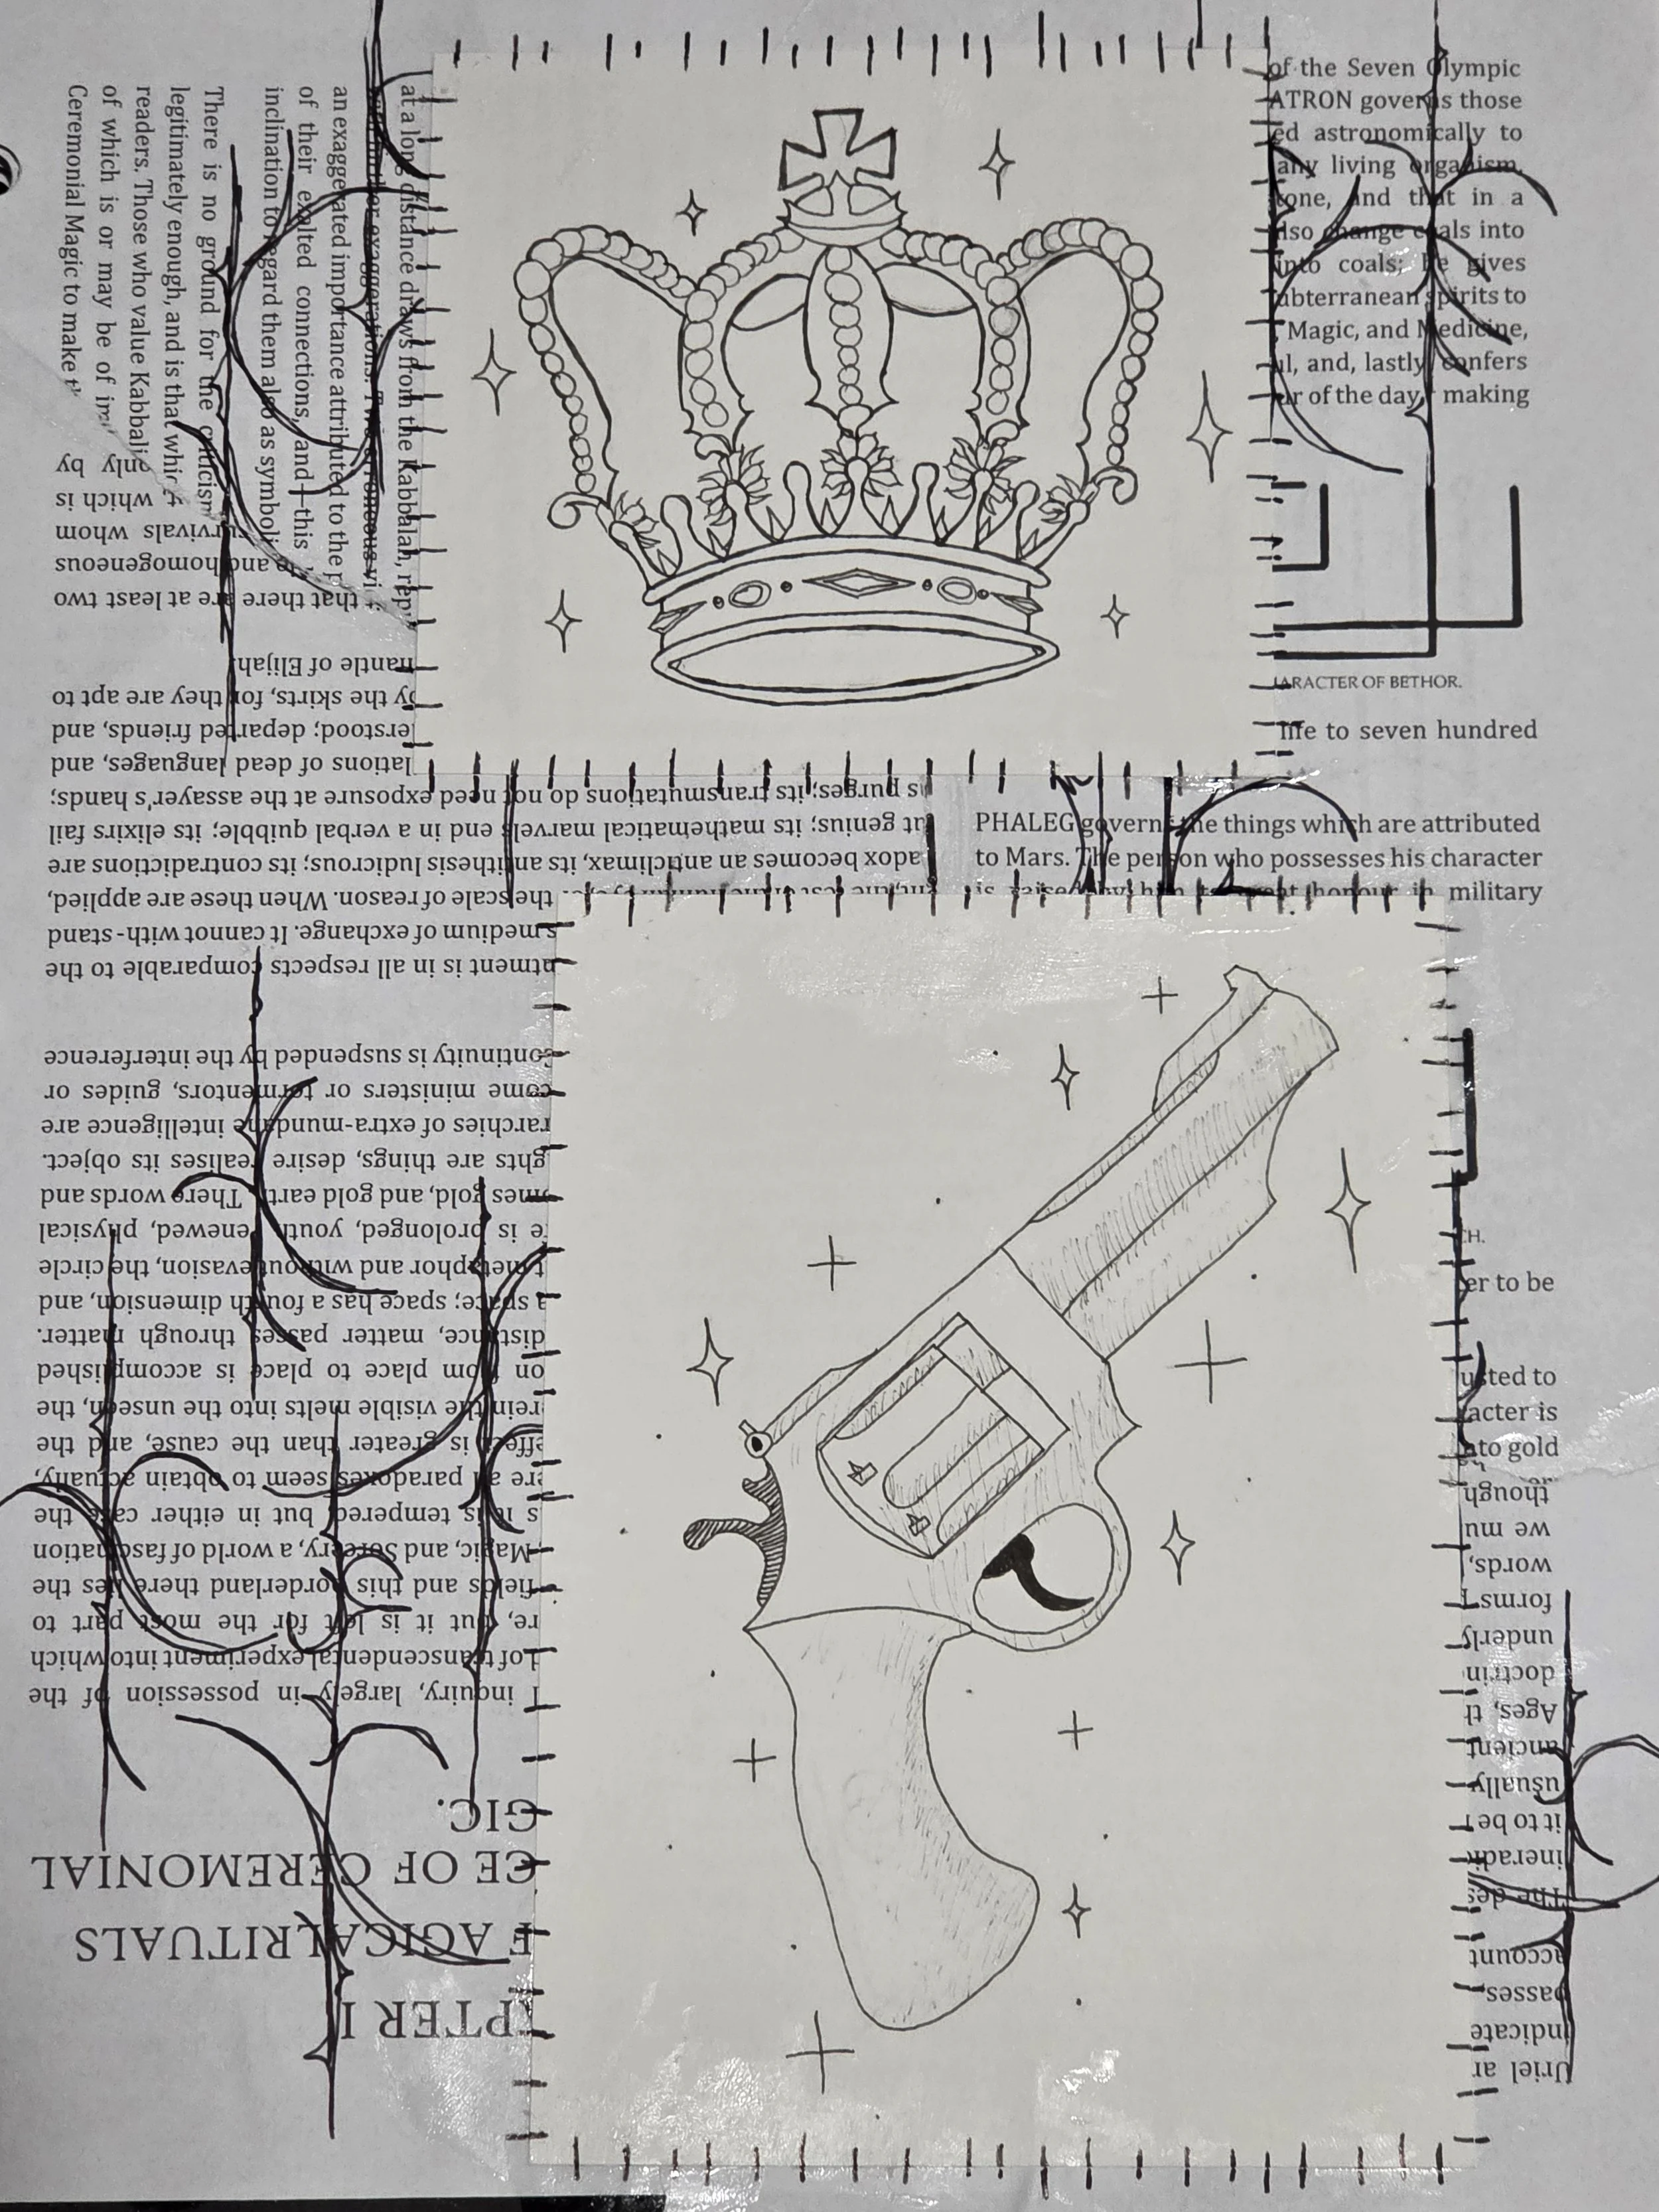 at a long distance draws from the Kabbalah, rep
for exaggerations. Two erroneous vi
an exaggerated importance attributed to the p
of their exalted connections, and—this
inclination to regard them also as symboli
There is no ground for the criticism
legitimately enough, and is that which
readers. Those who value Kabbalis
of which is or may be of im
Ceremonial Magic to make t
of the Seven Olympic
ATRON governs those
ed astronomically to
any living organism,
tone, and that in a
also change coals into
into coals; he gives
ubterranean spirits to
, Magic, and Medicine,
ul, and, lastly, confers
ur of the day, making
ARACTER OF BETHOR.
life to seven hundred
PHALEG governs the things which are attributed
to Mars. The person who possesses his character
is raised by him to great honour in military
CH.
er to be
usted to
acter is
nto gold
PTER I
F AGICAL RITUALS
CE OF CEREMONIAL
GIC.
l inquiry, largely in possession of the
l of transcendental experiment into which
re, but it is left for the most part to
fields and this borderland there lies the
Magic, and Sorcery, a world of fascination
s it is tempered; but in either case the
ere all paradoxes seem to obtain actually,
effect is greater than the cause, and the
rein the visible melts into the unseen, the
on from place to place is accomplished
distance, matter passes through matter.
a space; space has a fourth dimension, and
t metaphor and without evasion, the circle
e is prolonged, youth renewed, physical
omes gold, and gold earth. There words and
ghts are things, desire realises its object.
rarchies of extra-mundane intelligence are
come ministers or tormentors, guides or
continuity is suspended by the interference
ntment is in all respects comparable to the
s medium of exchange. It cannot with-stand
the scale of reason. When these are applied,
adox becomes an anticlimax, its antithesis ludicrous; its contradictions are
ut genius; its mathematical marvels end in a verbal quibble; its elixirs fail
s purges; its transmutations do not need exposure at the assayer's hands;
lations of dead languages, and
erstood; departed friends, and
by the skirts, for they are apt to
mantle of Elijah.
it that there are at least two
te and homogeneous
survivals whom
t which is
only by
Uriel ar
indicate
passes
account
The des
ineradic
it to be r
usually
ancient
Ages, th
doctrin
underly
forms
words,
we mu
though